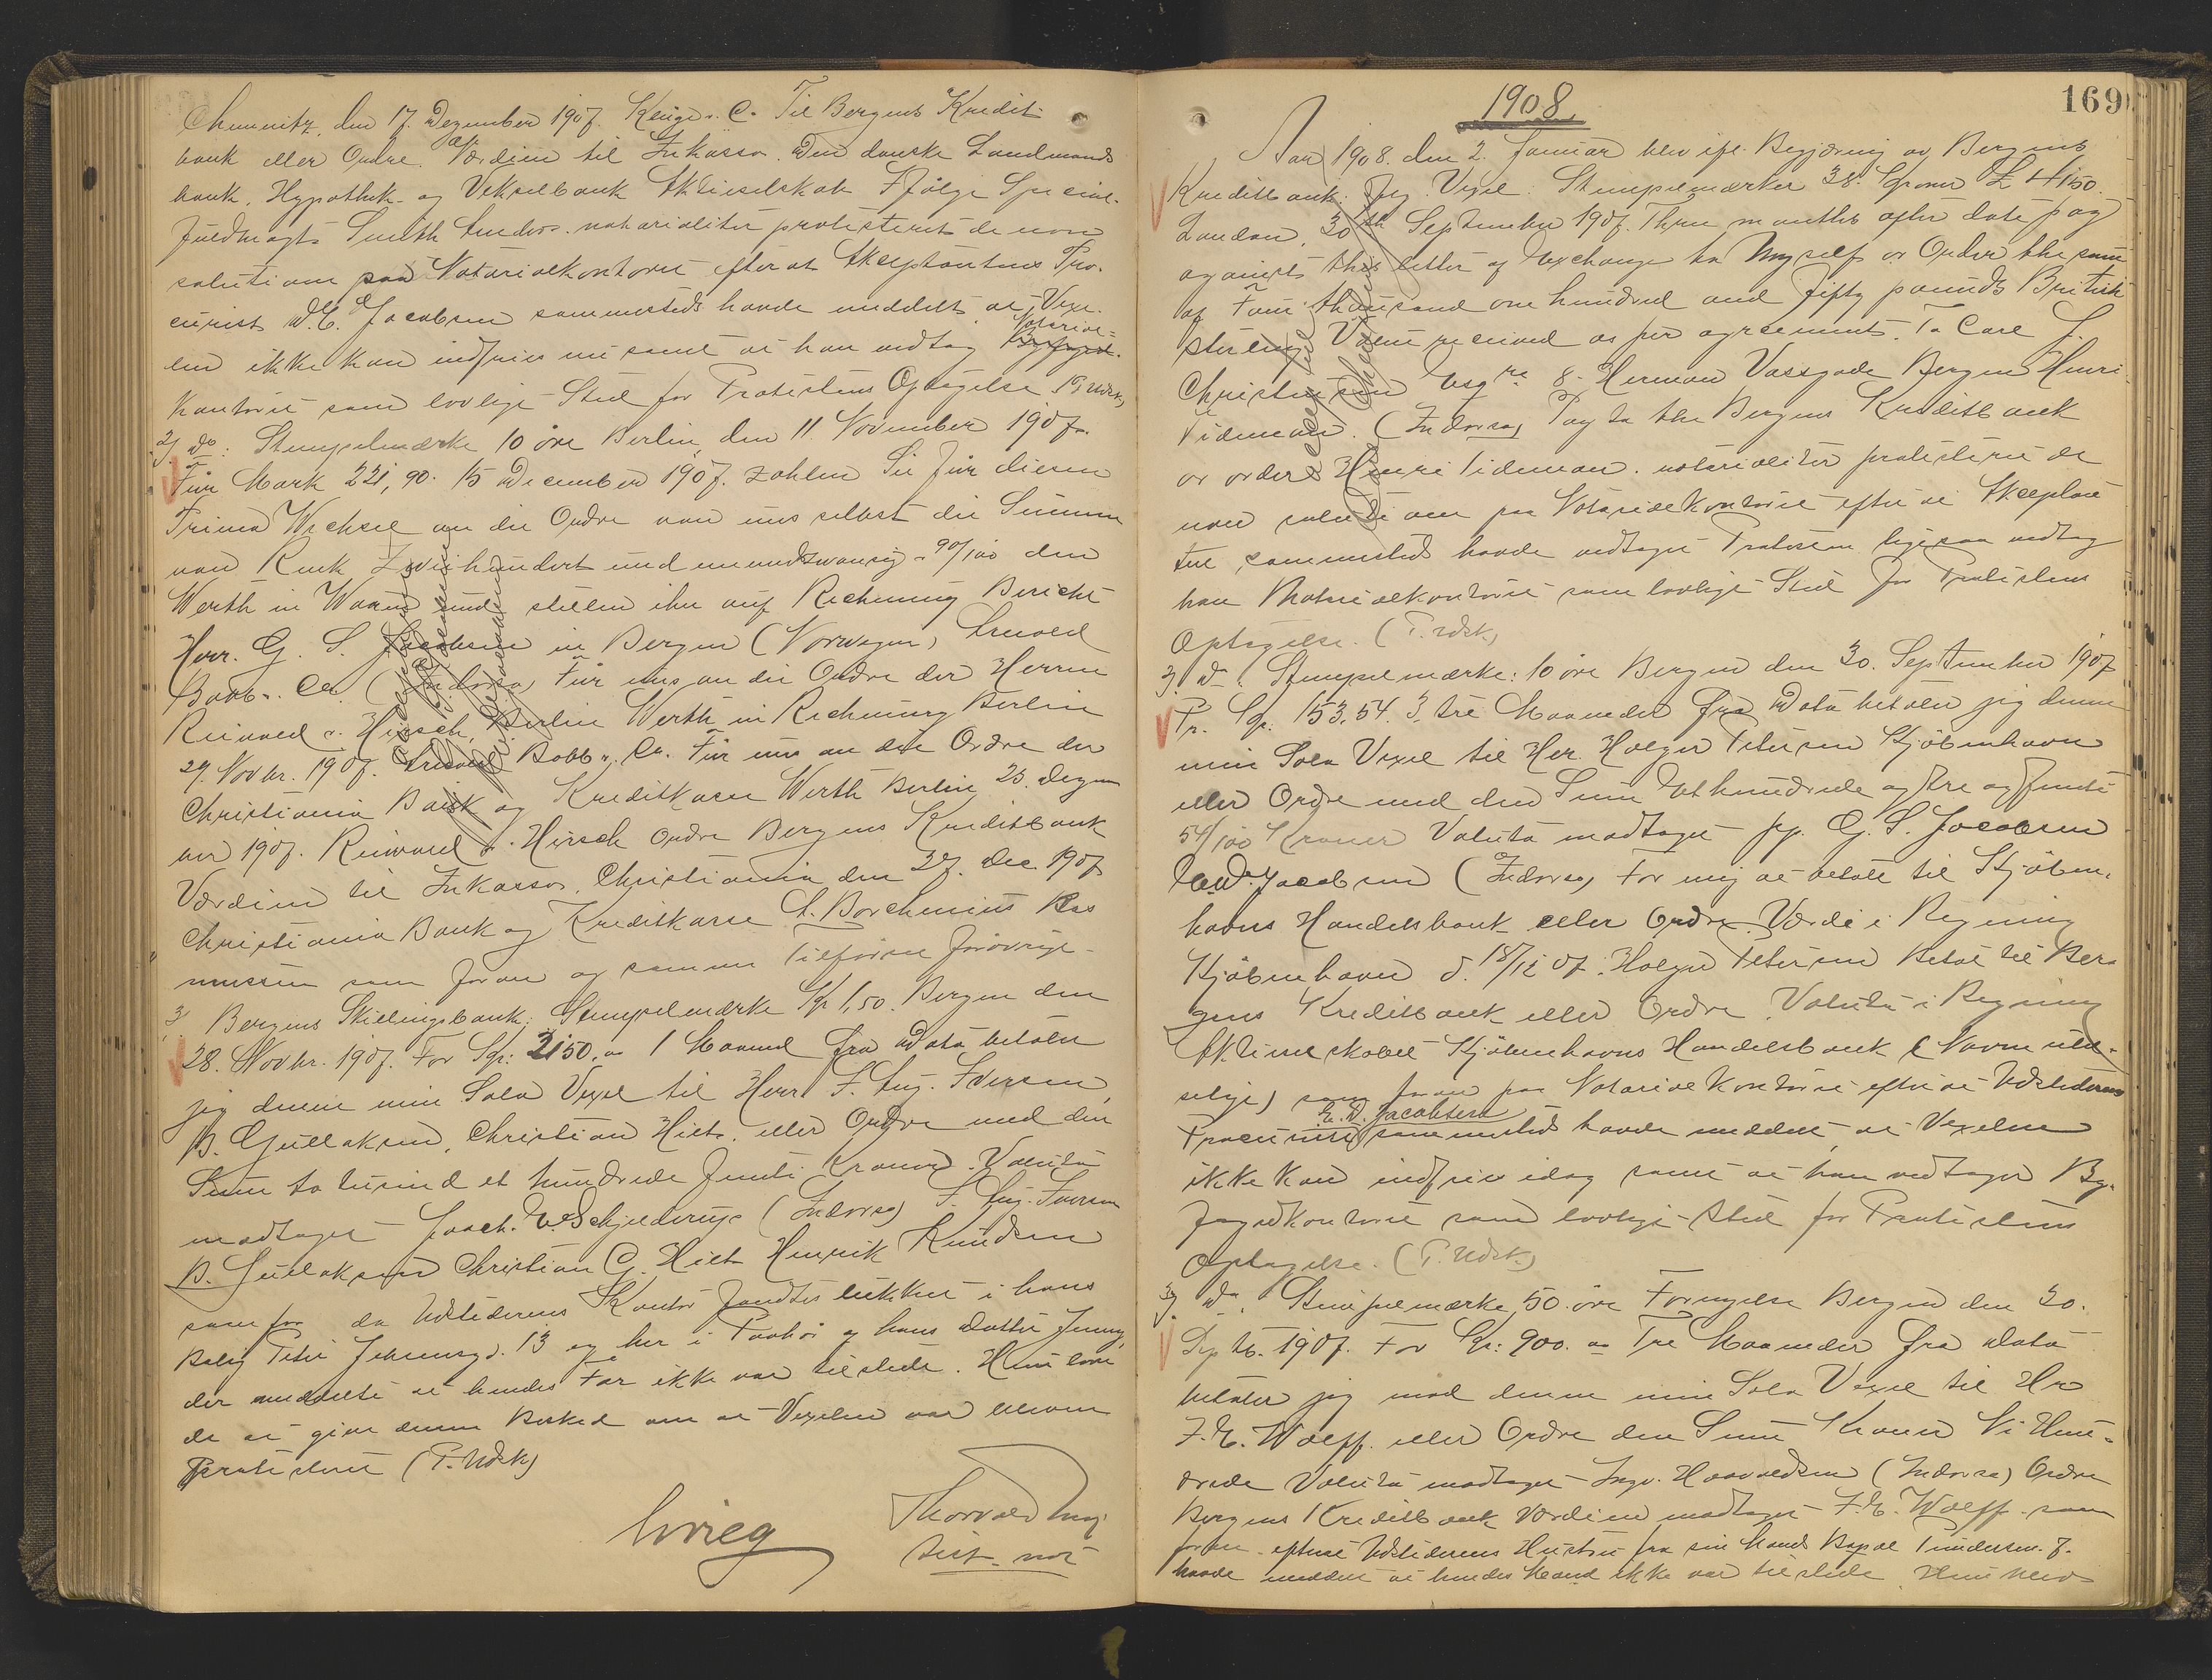 Chemnitz, den 17. Dezember 1907. Kluge u. Co. Til Bergens Kredit-
bank eller Ordre. Værdien til Inkasso. Den danske Landmands
bank, Hypothek- og Vekselbank Aktieselskab Ifølge Special-
fuldmagt: Smith Anders. notarialiter protesteret de non
solutione paa Notarialkontoret efterat Akceptantens Pro-
curist W. E. Jacobsen sammesteds havde meddelt at Vexe-
len ikke kan indfries nu samt at han vedtog Byfoged-
Notarial-
Kontoret som lovlige Sted for Protestens Optagelse. (P. Udsk)
2) do: Stempelmærke 10 øre Berlin, den 11 November 1907.
Für Mark 221,90. 15 December 1907. zahlen Sie für diesen
Prima Wechsel an die Ordre von uns selbst die Summe
von Rmk Zweihundert und einundzwanzig 90/100 den
Werth in Waaren und stellen ihn auf Rechnung Bericht
Herr. G. S. Jacobsen in Bergen (Norwegen)
Bobb u. Co. (Indorso) Für uns an die Ordre der Herren
Reinwald u. Hirsch, Berlin Werth in Rechnung Berlin
29. Novbr. 1907. Bobb u. Co. Für uns an die Ordre der
Christiania Bank og Kreditkasse Werth Berlin 23. Dezem
ber 1907. Reinwald u. Hirsch Ordre Bergens Kreditbank
Værdien til Inkasso, Christiania den 27. Dec. 1907
Christiania Bank og Kreditkasse A. Borchenius Ras
mussen som foran og samme Tilførsel forøvrigt
3) Bergens Skillingsbank: Stempelmærke Kr 1,50. Bergen den
28. Novbr. 1907. For Kr: 2150,00 1 Maaned fra Dato betaler
jeg denne min Sola Vexel til Herr F. Aug. Iversen,
B. Gullaksen, Christian Hilt, eller Ordre med den
Sum to tusind et hundrede femti Kroner. Valuta
modtaget Joach. W. Schjelderup (Indorso) F. Aug. Iversen
B. Gullaksen Christian G. Hilt Henrik Knudsen
som før da Udstederens Kontor fandtes lukket i hans
Bolig Peter Jebsensgd. 13 og her i Paahør af hans Datter Jenny,
der meddelte at hendes Far ikke var tilstede. Hun love
de at give denne Besked om at Vexelen var bleven
Protesteret (P. Udsk)
Grieg
Thorvald
1908
169
Aar 1908. den 2. Januar blev ifl. Begjæring av Bergens
Kreditbank. fig. Vexel. Stempelmærker 38. Kroner £ 4150.
London, 30th September 1907. Three months after date pay
against this letter of exchange to Myself or Order the sum
of Four thousand one hundred and fifty pounds British
sterling Value received as per agreement. To Carl J.
Christensen Esqre 8 Herman Vossgade Bergen Henri
Tideman. (Indorso) Pay to the Bergens Kreditbank
or order Henri Tideman. notarialiter protesteret de
non solutione paa Notarialkontoret efter at Akceptan
ten sammesteds havde vedtaget Protesten ligesaa vedtog
han Notarialkontoret som lovlige Sted for Protestens
Optagelse. (P. Udsk)
2) do. Stempelmærke: 10 øre Bergen den 30. September 1907
Pr. Kr. 153,54. 3, tre Maaneder fra Dato betaler jeg denne
min Sola Vexel til Her. Holger Petersen Kjøbenhavn
eller Ordre med den Sum Ethundrede og tre og femti
54/100 Kroner Valuta modtaget pp. G. S. Jacobsen
W. Jacobsen (Indorso) For mig at betale til Kjøben-
havns Handelsbank eller Ordre Værdi i Regning
Kjøbenhavn d. 18/12 07. Holger Petersen Betal til Ber
gens Kreditbank eller Ordre. Valuta i Regning
Aktieselskabet Kjøbenhavns Handelsbank (Navn utyde-
lige) som foran paa Notarialkontoret efter at Udstederens
E. W. Jacobsen
Procurist sammesteds havde meddelt at Vexelen
ikke kan indfries idag samt at han vedtager By-
fogedkontoret som lovlige Sted for Protestens
Optagelse. (P. Udsk.)
3) do. Stempelmærke 50 øre Fornyelse Bergen den 30.
Septb. 1907. For Kr: 900.00 Tre Maaneder fra Dato
betaler jeg mod denne min Sola Vexel til Hr
F. E. Wolff. eller Ordre den Sum Kroner Ni Hun-
drede Valuta modtaget Ingv. Haavaldsen (Indorso) Ordre
Bergens Kreditbank Værdien modtaget F. E. Wolff. som
foran. efterat Udstederens Hustru fra sin Mands Bopæl
havde meddelt at hendes Mand ikke var tilstede. Hun blev